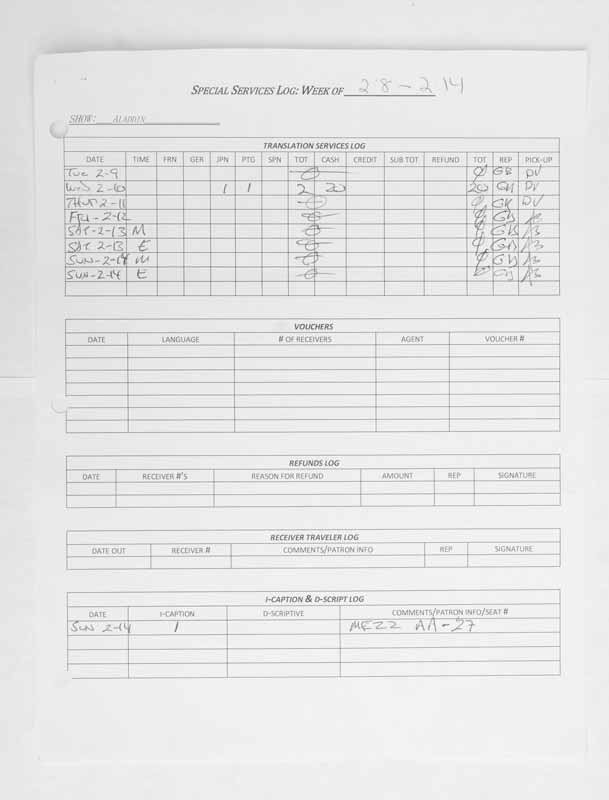 SPECIAL SERVICES LOG: WEEK OF 2-8 - 2-14
SHOW: ALADDIN
TRANSLATION SERVICES LOG
DATE TIME FRN GER JPN PTG SPN TOT CASH CREDIT SUB TOT REFUND TOT REP PICK-UP
TUE 2-9 Ø Ø GB DV
WED 2-10 1 1 2 20 20 GB DV
THUR 2-11 Ø Ø GB DV
FRI-2-12 Ø Ø GB AB
SAT-2-13 M Ø Ø GB AB
SAT 2-13 E Ø Ø GB AB
SUN-2-14 M Ø Ø GB AB
SUN-2-14 E Ø Ø GB AB
VOUCHERS
DATE LANGUAGE # OF RECEIVERS AGENT VOUCHER #
REFUNDS LOG
DATE RECEIVER #'S REASON FOR REFUND AMOUNT REP SIGNATURE
RECEIVER TRAVELER LOG
DATE OUT RECEIVER # COMMENTS/PATRON INFO REP SIGNATURE
I-CAPTION & D-SCRIPT LOG
DATE I-CAPTION D-SCRIPTIVE COMMENTS/PATRON INFO/SEAT #
SUN 2-14 1 MEZZ AA-27